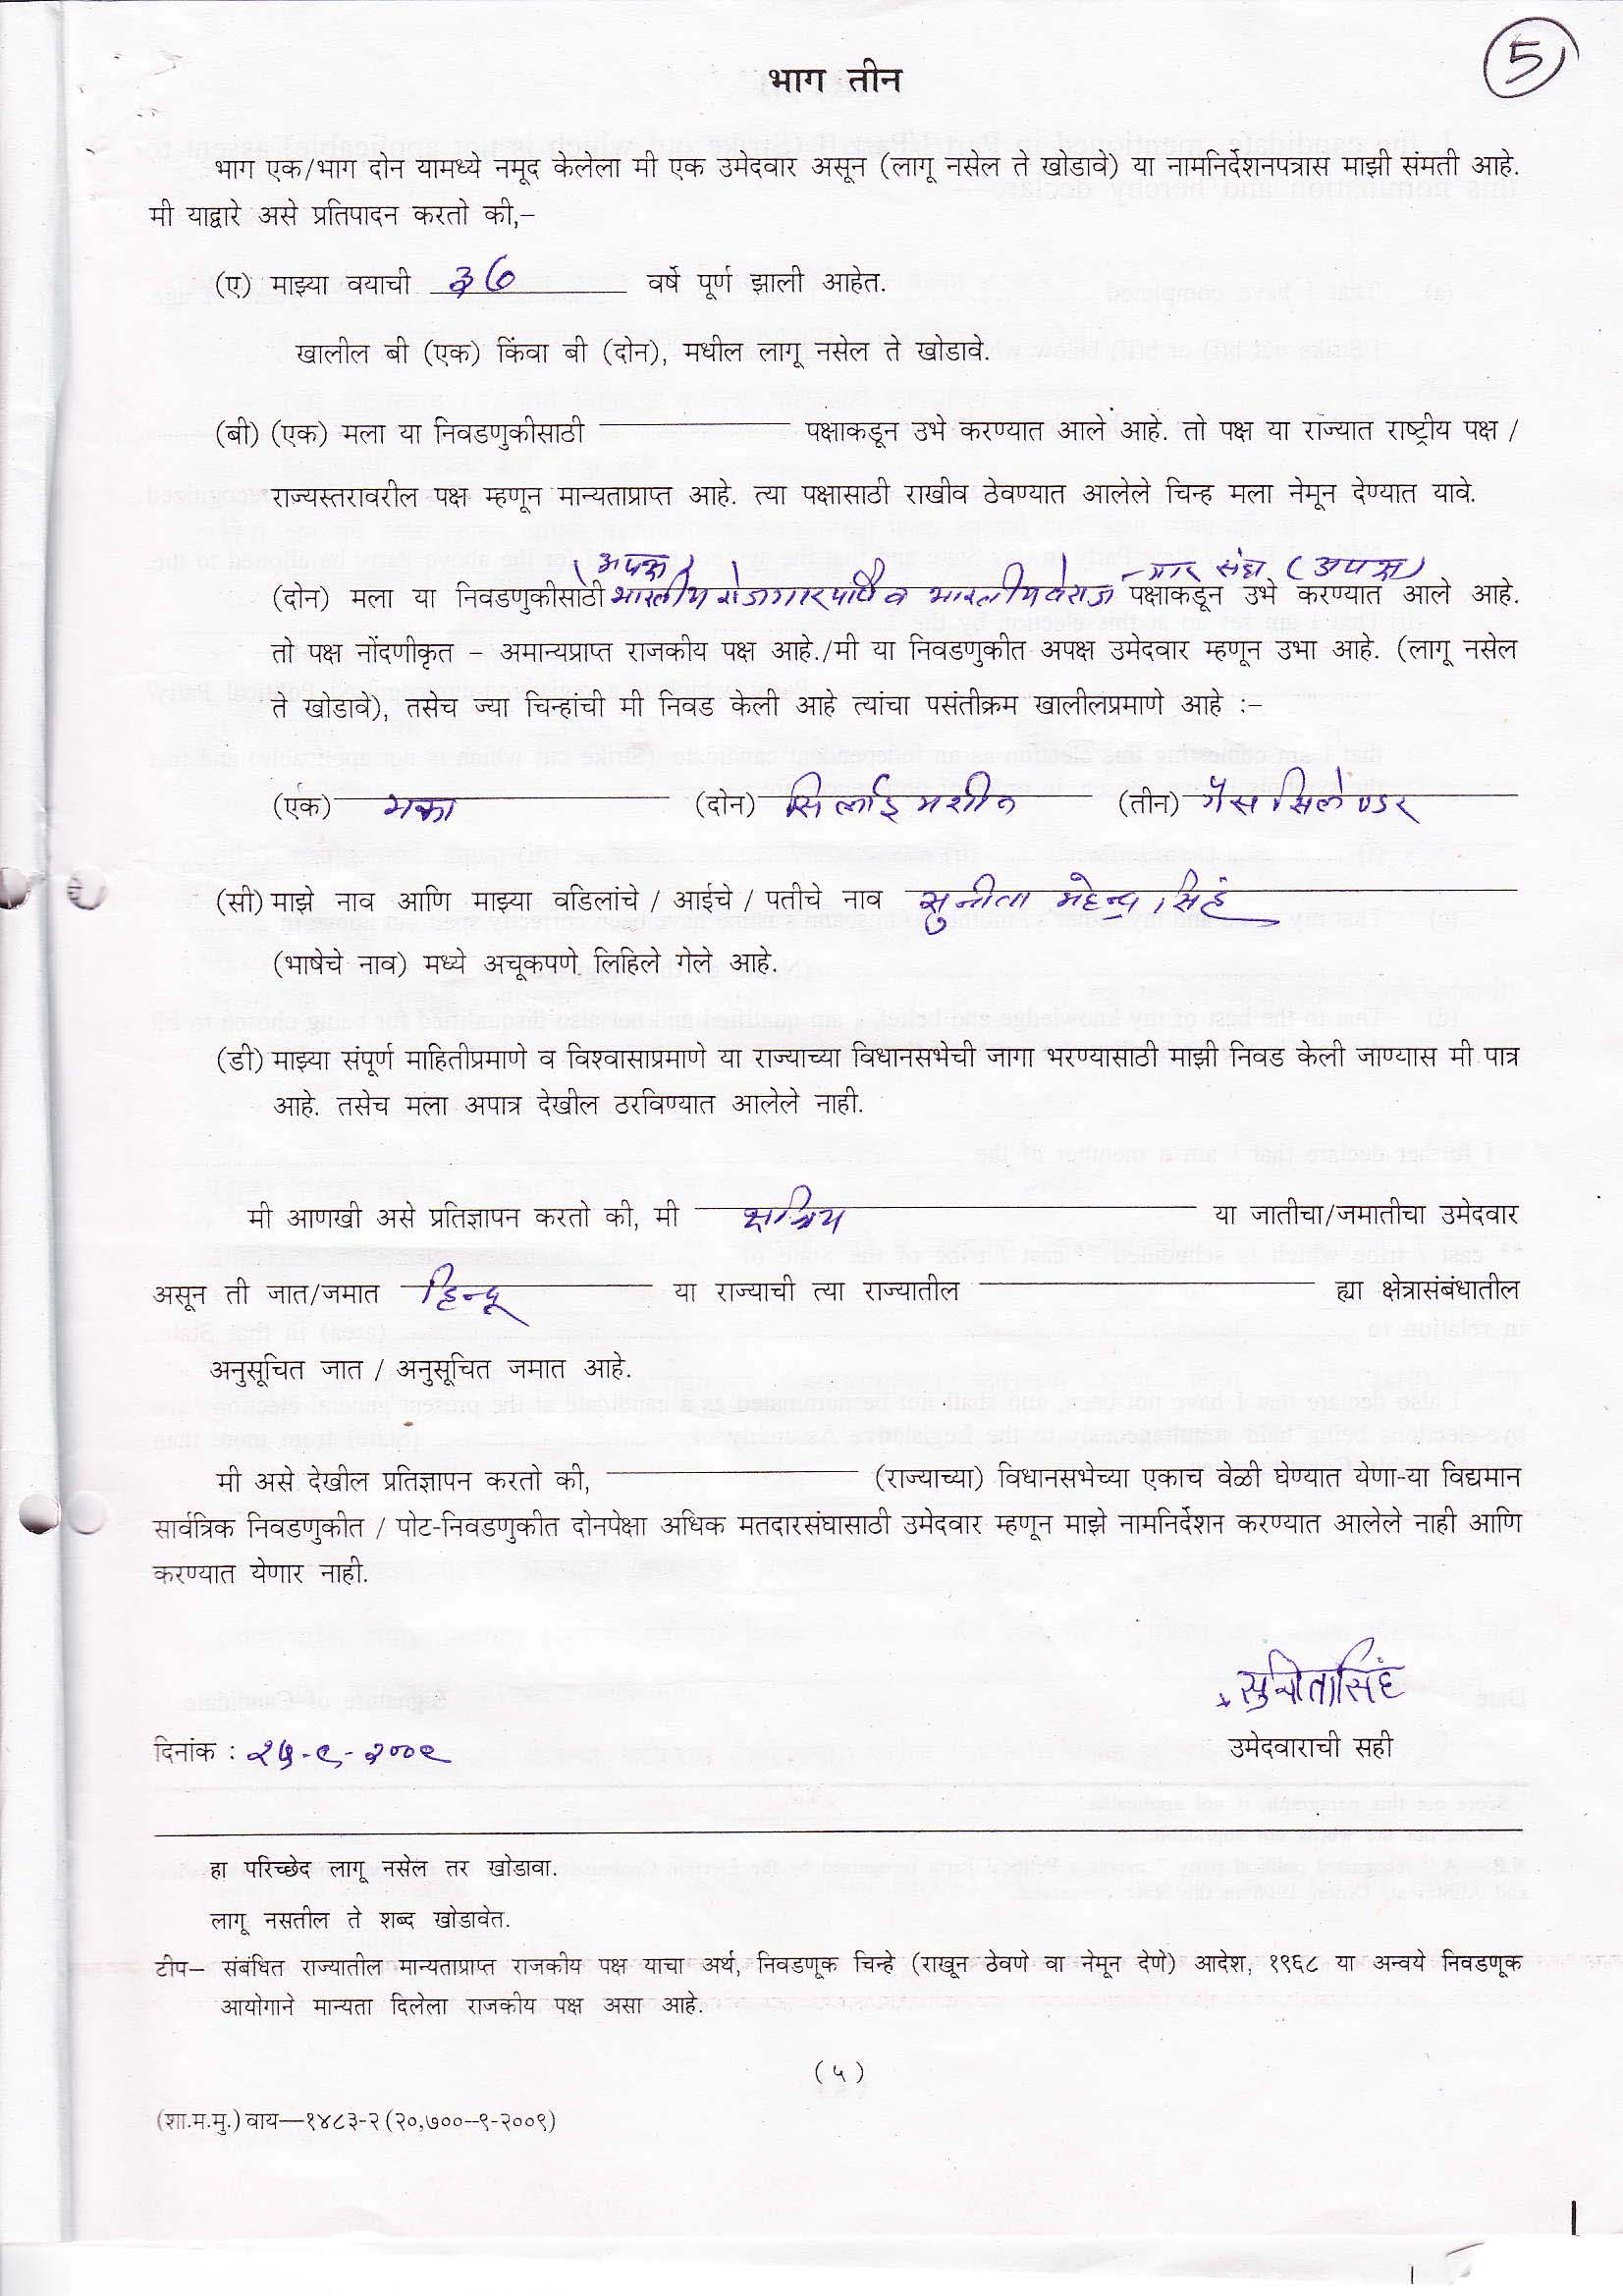 5
भाग तीन
भाग एक/भाग दोन यामध्ये नमूद केलेला मी एक उमेदवार असून (लागू नसेल ते खोडावे) या नामनिर्देशनपत्रास माझी संमती आहे.
मी याद्वारे असे प्रतिपादन करतो की,–
(ए) माझ्या वयाची ३७ वर्षे पूर्ण झाली आहेत.
खालील बी (एक) किंवा बी (दोन), मधील लागू नसेल ते खोडावे.
(बी) (एक) मला या निवडणुकीसाठी पक्षाकडून उभे करण्यात आले आहे. तो पक्ष या राज्यात राष्ट्रीय पक्ष /
राज्यस्तरावरील पक्ष म्हणून मान्यताप्राप्त आहे. त्या पक्षासाठी राखीव ठेवण्यात आलेले चिन्ह मला नेमून देण्यात यावे.
(अपक्ष) गार संघ (अपक्ष)
(दोन) मला या निवडणुकीसाठी भारतीय रोजगार पार्टी व भारतीय बेरोज पक्षाकडून उभे करण्यात आले आहे.
तो पक्ष नोंदणीकृत – अमान्यप्राप्त राजकीय पक्ष आहे./मी या निवडणुकीत अपक्ष उमेदवार म्हणून उभा आहे. (लागू नसेल
ते खोडावे), तसेच ज्या चिन्हांची मी निवड केली आहे त्यांचा पसंतीक्रम खालीलप्रमाणे आहे :–
(एक) मका (दोन) सिलाई मशीन (तीन) गैस सिलेण्डर
(सी) माझे नाव आणि माझ्या वडिलांचे / आईचे / पतीचे नाव सुनीता महेन्द्र सिहं
(भाषेचे नाव) मध्ये अचूकपणे लिहिले गेले आहे.
(डी) माझ्या संपूर्ण माहितीप्रमाणे व विश्वासाप्रमाणे या राज्याच्या विधानसभेची जागा भरण्यासाठी माझी निवड केली जाण्यास मी पात्र
आहे. तसेच मला अपात्र देखील ठरविण्यात आलेले नाही.
मी आणखी असे प्रतिज्ञापन करतो की, मी क्षत्रिय या जातीचा/जमातीचा उमेदवार
असून ती जात/जमात हिन्दू या राज्याची त्या राज्यातील ह्या क्षेत्रासंबंधातील
अनुसूचित जात / अनुसूचित जमात आहे.
मी असे देखील प्रतिज्ञापन करतो की, (राज्याच्या) विधानसभेच्या एकाच वेळी घेण्यात येणा-या विद्यमान
सार्वत्रिक निवडणुकीत / पोट-निवडणुकीत दोनपेक्षा अधिक मतदारसंघासाठी उमेदवार म्हणून माझे नामनिर्देशन करण्यात आलेले नाही आणि
करण्यात येणार नाही.
सुनीतासिंह
दिनांक : २५-९-२००९ उमेदवाराची सही
हा परिच्छेद लागू नसेल तर खोडावा.
लागू नसतील ते शब्द खोडावेत.
टीप– संबंधित राज्यातील मान्यताप्राप्त राजकीय पक्ष याचा अर्थ, निवडणूक चिन्हे (राखून ठेवणे वा नेमून देणे) आदेश, १९६८ या अन्वये निवडणूक
आयोगाने मान्यता दिलेला राजकीय पक्ष असा आहे.
(५)
(शा.म.मु.) वाय—१४८३-२ (२०,७००--९-२००९)